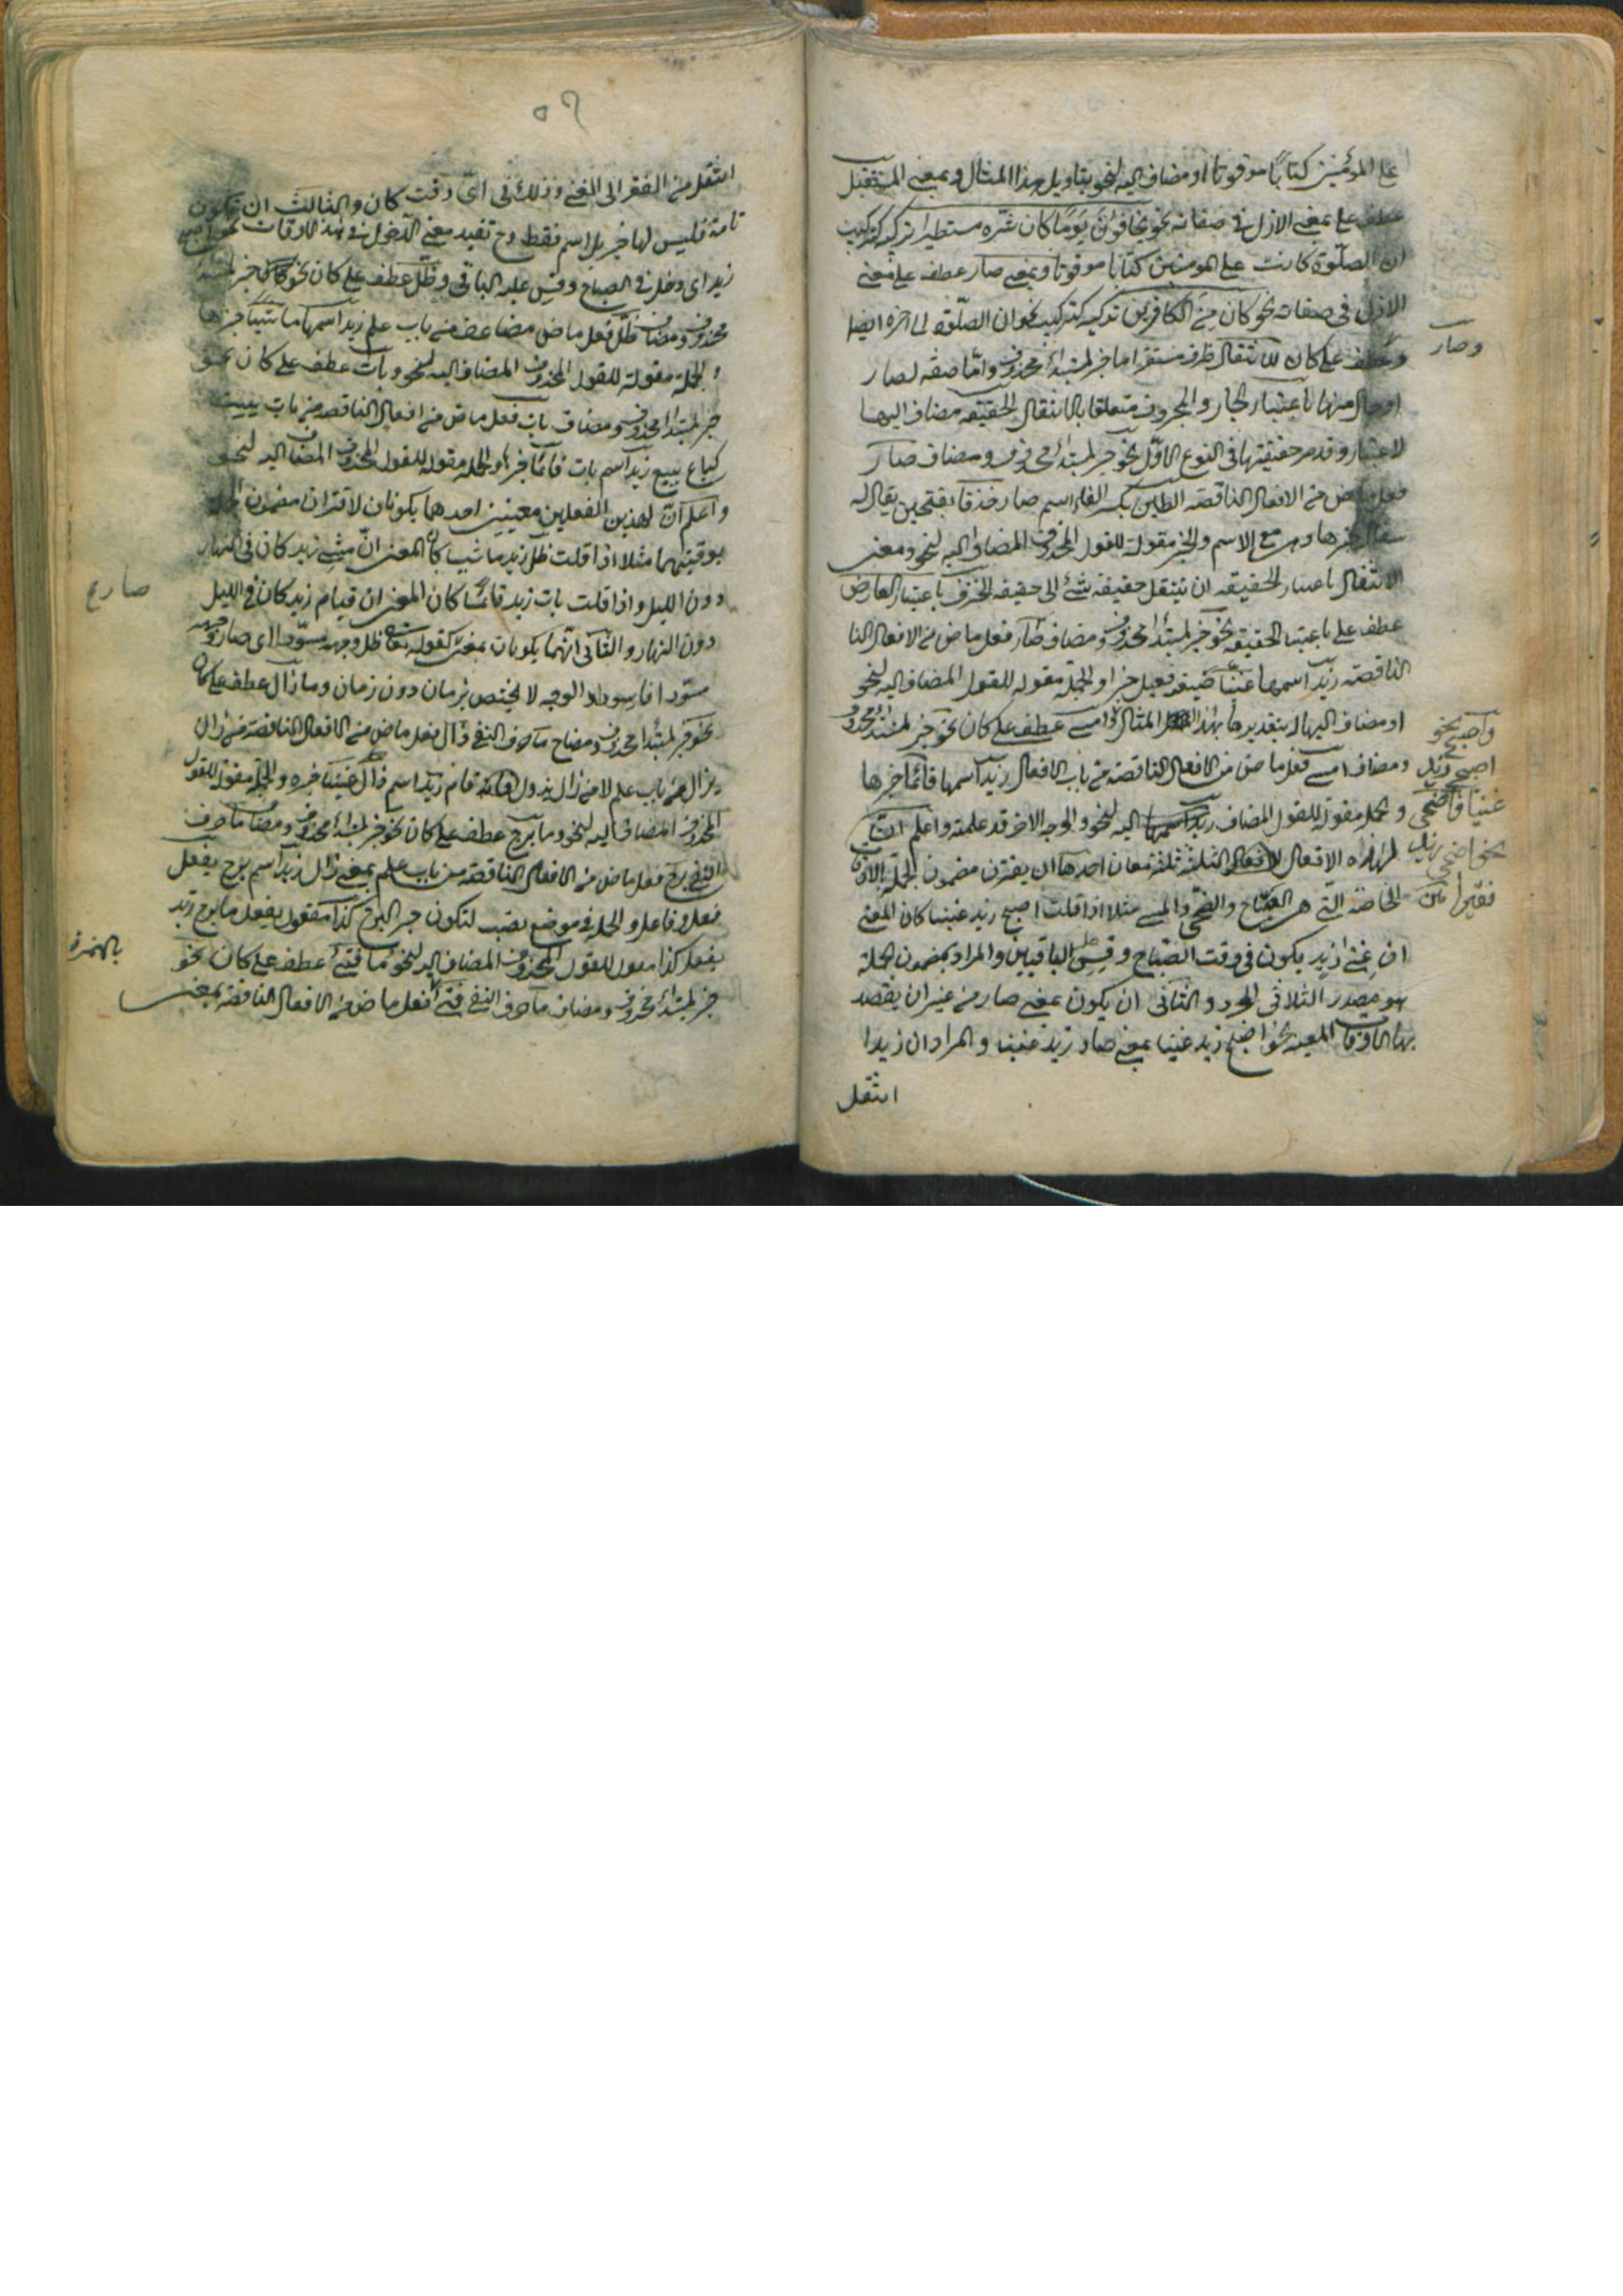 على المؤمنين كتابا موقوتا او مضاف اليه لنحو بتاويل هذا المثال وبمعنى المستقبل
عطف على بمعنى الازل في صفاته نحو يخافون يوما كان شره مستطيرا تركيبه كتركيب
ان الصلوة كانت على المومنين كتابا موقوتا وبمعنى صار عطف على معنى
الازل في صفاته نحو كان من الكافرين تركيبه كتركيب نحو ان الصلوة الى اخره ايضا
وصار
وعطف على كان للانتقال ظرف مستقر اما خبر لمبتدأ محذوف واما صفة لصار
او حال منها باعتبار الجار والمجرور متعلقا بالانتقال الحقيقة مضاف اليها
لاعتبار وقد مر حقيقتها في النوع الاول نحو خبر لمبتدأ محذوف ومضاف صار
فعل ماض من الافعال الناقصة الطين بكسر الطاء اسم صار خذفا بفتحتين يقال له
سفال خبرها وهي مع الاسم والخبر مقولة للقول المحذوف المضاف اليه لنحو ومعنى
الانتقال باعتبار الحقيقة ان ينتقل حقيقة شئ الى حقيقة الخزف باعتبار العارض
عطف على باعتبار الحقيقة نحو خبر لمبتدأ محذوف ومضاف صار فعل ماض من الافعال النا
الناقصة زيد اسمها غنيا صيغة فعيل خبر والجملة مقولة للقول المضاف اليه لنحو
او مضاف اليها له بتقديرها بهذا المثال وامسى عطف على كان نحو خبر لمبتدأ محذوف
ومضاف امسى فعل ماض من الافعال الناقصة من باب الافعال زيد اسمها قائما خبرها
والجملة مقولة للقول المضاف اليه لنحو والوجه الاخر قد علمته واعلم ان
لهذه الافعال الثلثة ثلثة معان احدها ان يقترن مضمون الجملة بالاوقات
الخاصة التي هي الصباح والضحى والمسى مثلا اذا قلت اصبح زيد غنيا كان المعنى
ان غنى زيد يكون في وقت الصباح وقس على الباقيين والمراد بمضمون الجملة
هو مصدر الثلاثي المجرد والثاني ان يكون بمعنى صار من غير ان يقصد
بها الاوقات المعينة نحو اصبح زيد غنيا بمعنى صار زيد غنيا والمراد ان زيدا
انتقل
واصبح نحو
اصبح زيد
غنيا واضحى
نحو اضحى زيد
فقيرا
٥٦
انتقل من الفقر الى الغنى وذلك في اي وقت كان والثالث ان تكون
تامة فليس لها خبر بل اسم فقط وح تفيد معنى الدخول في هذه الاوقات نحو اصبح
زيد اي دخل في الصباح وقس عليه الباقي وظل عطف على كان نحو خبر لمبتدأ
محذوف ومضاف ظل فعل ماض مضاعف من باب علم زيد اسمها ماشيا خبرها
والجملة مقولة للقول المحذوف المضاف اليه لنحو وبات عطف على كان نحو
خبر لمبتدأ محذوف ومضاف بات فعل ماض من افعال الناقصة من بات يبيت
كباع يبيع زيد اسم بات قائما خبرها والجملة مقولة للقول المحذوف المضاف اليه لنحو
واعلم ان لهذين الفعلين معنيين احدهما يكونان لاقتران مضمون الجملة
بوقتيهما مثلا اذا قلت ظل زيد ماشيا كان المعنى ان مشى زيد كان في النهار
دون الليل واذا قلت بات زيد قائما كان المعنى ان قيام زيد كان في الليل
دون النهار والثاني انهما يكونان بمعنى كقوله تعالى ظل وجهه مسودا اي صار وجهه
مسودا فاسوداد الوجه لا يختص بزمان دون زمان وما زال عطف على كان
نحو خبر لمبتدأ محذوف ومضاح ما حرف النفي زال فعل ماض من الافعال الناقصة من زال
يزال من باب علم لا من زال يزول قام زيد اسم زال غنيا خبره والجملة مقولة للقول
المحذوف المضاف اليه لنحو وما برح عطف على كان نحو خبر لمبتدأ محذوف ومضاف ما حرف
النفي برح فعل ماض من الافعال الناقصة من باب علم بمعنى زال زيد اسم برح يفعل
فعل وفاعل والجملة في موضع نصب لتكون خبر البرح كذا مفعول يفعل ما برح زيد
يفعل كذا مقول للقول المحذوف المضاف اليه لنحو ما فتئ عطف على كان نحو
خبر لمبتدأ محذوف ومضاف ما حرف النفي فتئ فعل ماض من الافعال الناقصة بمعنى
صار ع
بالهمزة